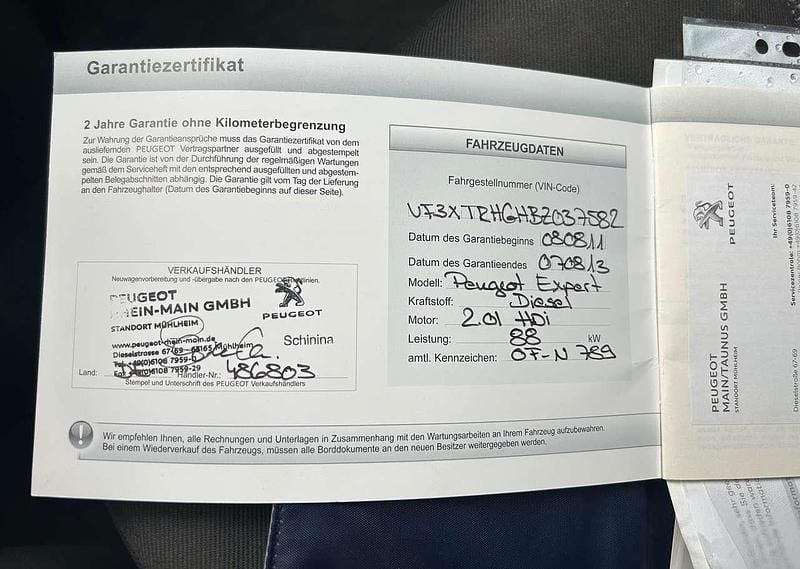 Garantiezertifikat
2 Jahre Garantie ohne Kilometerbegrenzung
Zur Wahrung der Garantieansprüche muss das Garantiezertifikat von dem
ausliefernden PEUGEOT Vertragspartner ausgefüllt und abgestempelt
sein. Die Garantie ist von der Durchführung der regelmäßigen Wartungen
gemäß dem Serviceheft mit den entsprechend ausgefüllten und abgestem-
pelten Belegabschnitten abhängig. Die Garantie gilt vom Tag der Lieferung
an den Fahrzeughalter (Datum des Garantiebeginns auf dieser Seite).
VERKAUFSHÄNDLER
Neuwagenvorbereitung und -übergabe nach den PEUGEOT
PEUGEOT
RHEIN-MAIN GMBH
STANDORT MÜHLHEIM
PEUGEOT
www.peugeot-rhein-main.de
Dieselstrasse 67/69 – 63165 Mühlheim
Schinina
Tel. +49(0)6108 7959-0
Fax +49(0)6108 7959-29
Land:
Händler-Nr.: 486803
Stempel und Unterschrift des PEUGEOT Verkaufshändlers
FAHRZEUGDATEN
Fahrgestellnummer (VIN-Code)
VF3XTRHGHBZ037582
Datum des Garantiebeginns 080811
Datum des Garantieendes 070813
Modell: Peugeot Expert
Kraftstoff: Diesel
Motor: 2.0l HDi
Leistung: 88 kW
amtl. Kennzeichen: OF-N 789
Wir empfehlen Ihnen, alle Rechnungen und Unterlagen in Zusammenhang mit den Wartungsarbeiten an Ihrem Fahrzeug aufzubewahren.
Bei einem Wiederverkauf des Fahrzeugs, müssen alle Borddokumente an den neuen Besitzer weitergegeben werden.
PEUGEOT
PEUGEOT
MAIN/TAUNUS GMBH
STANDORT MÜHLHEIM
Dieselstraße 67-69
Ihr Serviceteam:
Servicezentrale: +49(0)6108 7959-0